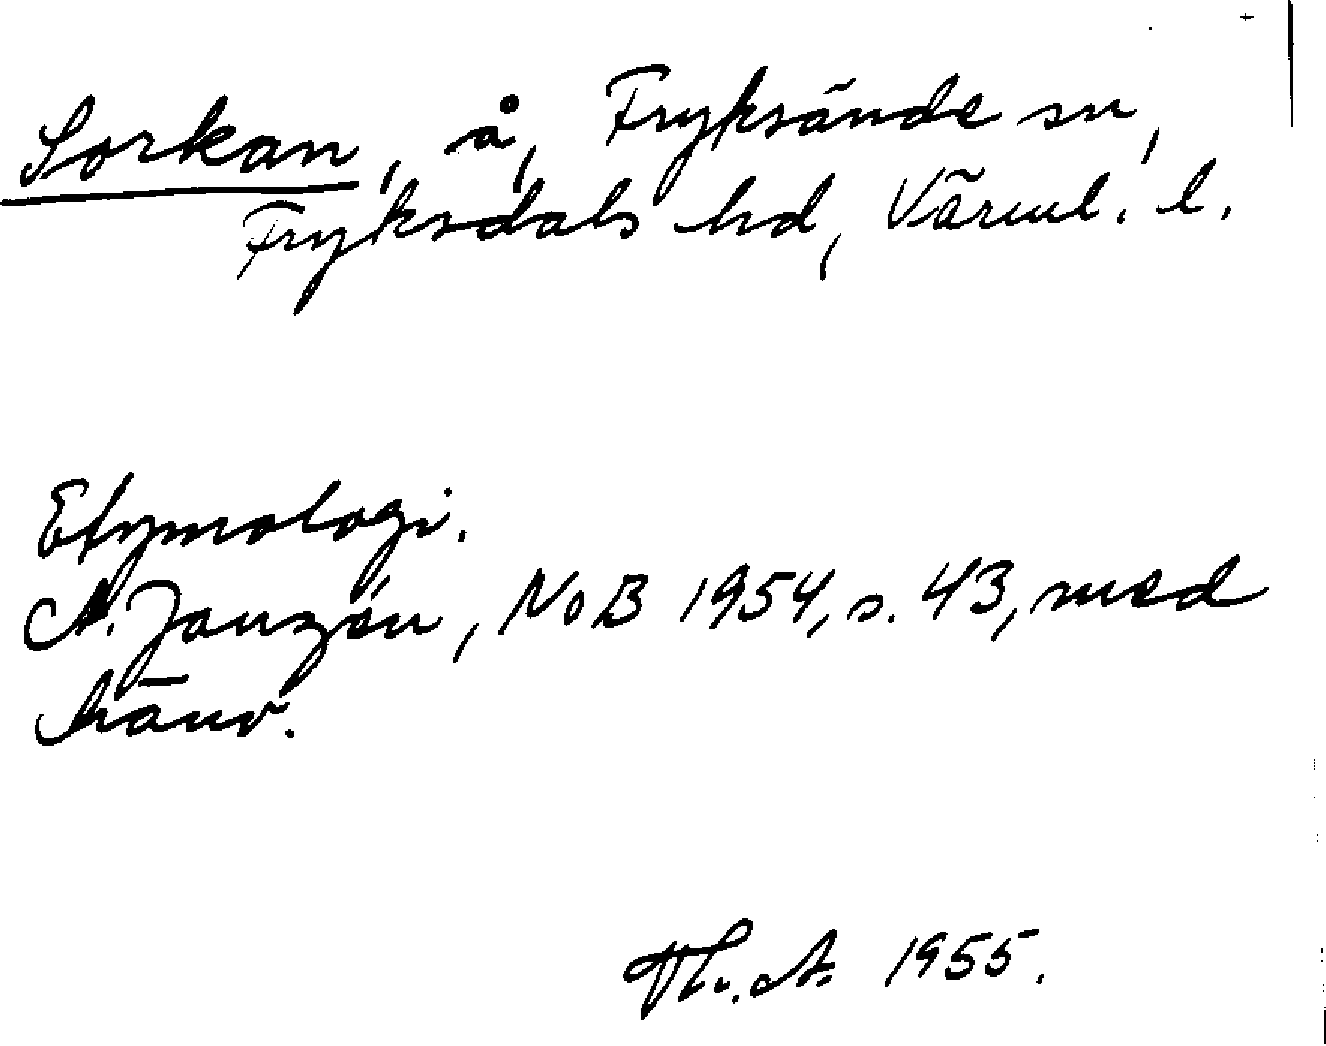 Sorkan, å, Fryksände sn,
Fryksdals hd, Värml. l.
Etymologi.
A. Janzén, NoB 1954, s. 43, med
hänv.
Th. A. 1955.